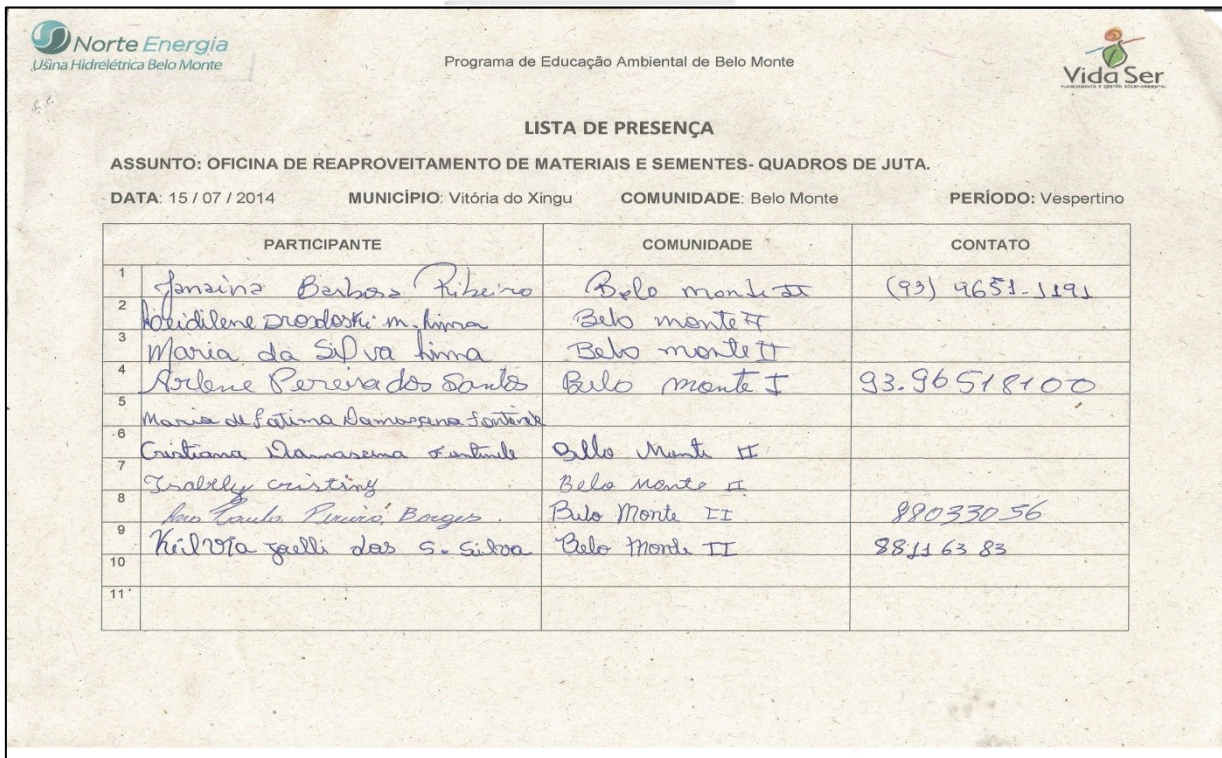 Norte Energia
Usina Hidrelétrica Belo Monte
Programa de Educação Ambiental de Belo Monte
Vida Ser
LISTA DE PRESENÇA
ASSUNTO: OFICINA DE REAPROVEITAMENTO DE MATERIAIS E SEMENTES- QUADROS DE JUTA.
DATA: 15 / 07 / 2014 MUNICÍPIO: Vitória do Xingu COMUNIDADE: Belo Monte PERÍODO: Vespertino
PARTICIPANTE COMUNIDADE CONTATO
1 Janaina Barbosa Ribeiro Belo monte II (93) 9651-1191
2 m. Lima Belo monte II
3 Maria da Silva Lima Belo monte II
4 Arlene Pereira dos Santos Belo monte I 93.96518100
5 Maria de Fatima Damascena
6 Cristiana Damascena Bello Monte II
7 Isabelly cristiny Belo Monte II
8 Paulo Borges. Belo Monte II 88033056
9 dos S. Silva Belo Monte II 88116383
10
11